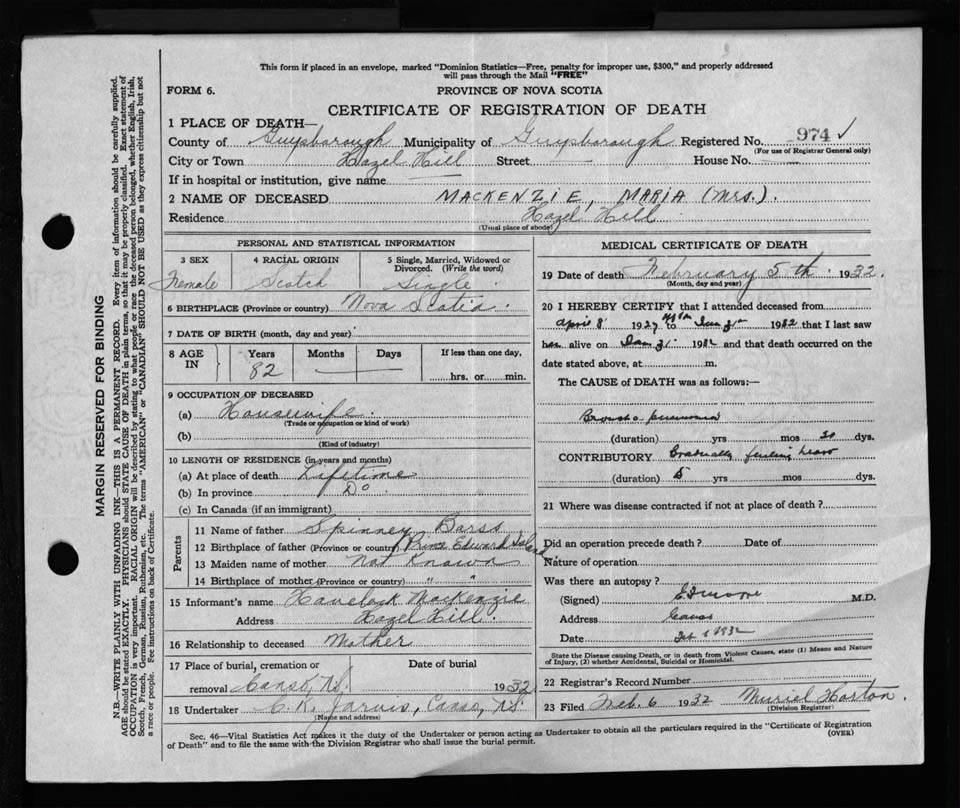 This form if placed in an envelope, marked "Dominion Statistics—Free, penalty for improper use, $300," and properly addressed
will pass through the Mail "FREE"
FORM 6.
PROVINCE OF NOVA SCOTIA
CERTIFICATE OF REGISTRATION OF DEATH
1 PLACE OF DEATH—
County of Guysborough Municipality of Guysborough Registered No. 974 ✓
(For use of Registrar General only)
City or Town Hazel Hill Street — House No. —
If in hospital or institution, give name —
2 NAME OF DECEASED MACKENZIE, MARIA (Mrs.).
Residence Hazel Hill
(Usual place of abode)
PERSONAL AND STATISTICAL INFORMATION
3 SEX 4 RACIAL ORIGIN 5 Single, Married, Widowed or
Divorced. (Write the word)
Female Scotch Single
6 BIRTHPLACE (Province or country) Nova Scotia.
7 DATE OF BIRTH (month, day and year)
8 AGE IN Years Months Days If less than one day,
82 — hrs. or min.
9 OCCUPATION OF DECEASED
(a) Housewife.
(Trade or occupation or kind of work)
(b)
(Kind of industry)
10 LENGTH OF RESIDENCE (in years and months)
(a) At place of death Lifetime
(b) In province Do.
(c) In Canada (if an immigrant)
Parents
11 Name of father Spinney Barss
12 Birthplace of father (Province or country) Prince Edward Island
13 Maiden name of mother Not Known
14 Birthplace of mother (Province or country) " "
15 Informant's name Havelock MacKenzie
Address Hazel Hill.
16 Relationship to deceased Mother
17 Place of burial, cremation or Date of burial
removal Canso, N.S. 1932
18 Undertaker C. K. Jarvis, Canso, N.S.
(Name and address)
MEDICAL CERTIFICATE OF DEATH
19 Date of death February 5th. 1932.
(Month, day and year)
20 I HEREBY CERTIFY that I attended deceased from
April 8 1927 to Jan 31 1932 that I last saw
her alive on Jan 31 1932 and that death occurred on the
date stated above, at m.
The CAUSE of DEATH was as follows:—
Broncho pneumonia
(duration) yrs mos dys.
CONTRIBUTORY Gradually failing heart
(duration) 5 yrs mos dys.
21 Where was disease contracted if not at place of death?
Did an operation precede death? Date of
Nature of operation
Was there an autopsy?
(Signed) M.D.
Address Canso
Date Feb 1932
State the Disease causing Death, or in death from Violent Causes, state (1) Means and Nature
of Injury, (2) whether Accidental, Suicidal or Homicidal.
22 Registrar's Record Number
23 Filed Feb. 6 1932 Muriel Horton.
(Division Registrar)
Sec. 46—Vital Statistics Act makes it the duty of the Undertaker or person acting as Undertaker to obtain all the particulars required in the "Certificate of Registration
of Death" and to file the same with the Division Registrar who shall issue the burial permit. (OVER)
MARGIN RESERVED FOR BINDING
N.B.—WRITE PLAINLY WITH UNFADING INK—THIS IS A PERMANENT RECORD. Every item of information should be carefully supplied.
AGE should be stated EXACTLY. PHYSICIANS should STATE CAUSE OF DEATH in plain terms, so that it may be properly classified. Exact statement of
OCCUPATION is very important. RACIAL ORIGIN will be described by stating to what people or race the deceased person belonged, whether English, Irish,
Scotch, French, German, Russian, Ruthenian, etc. The terms "AMERICAN" or "CANADIAN" SHOULD NOT BE USED as they express citizenship but not
a race or people. See instructions on back of Certificate.